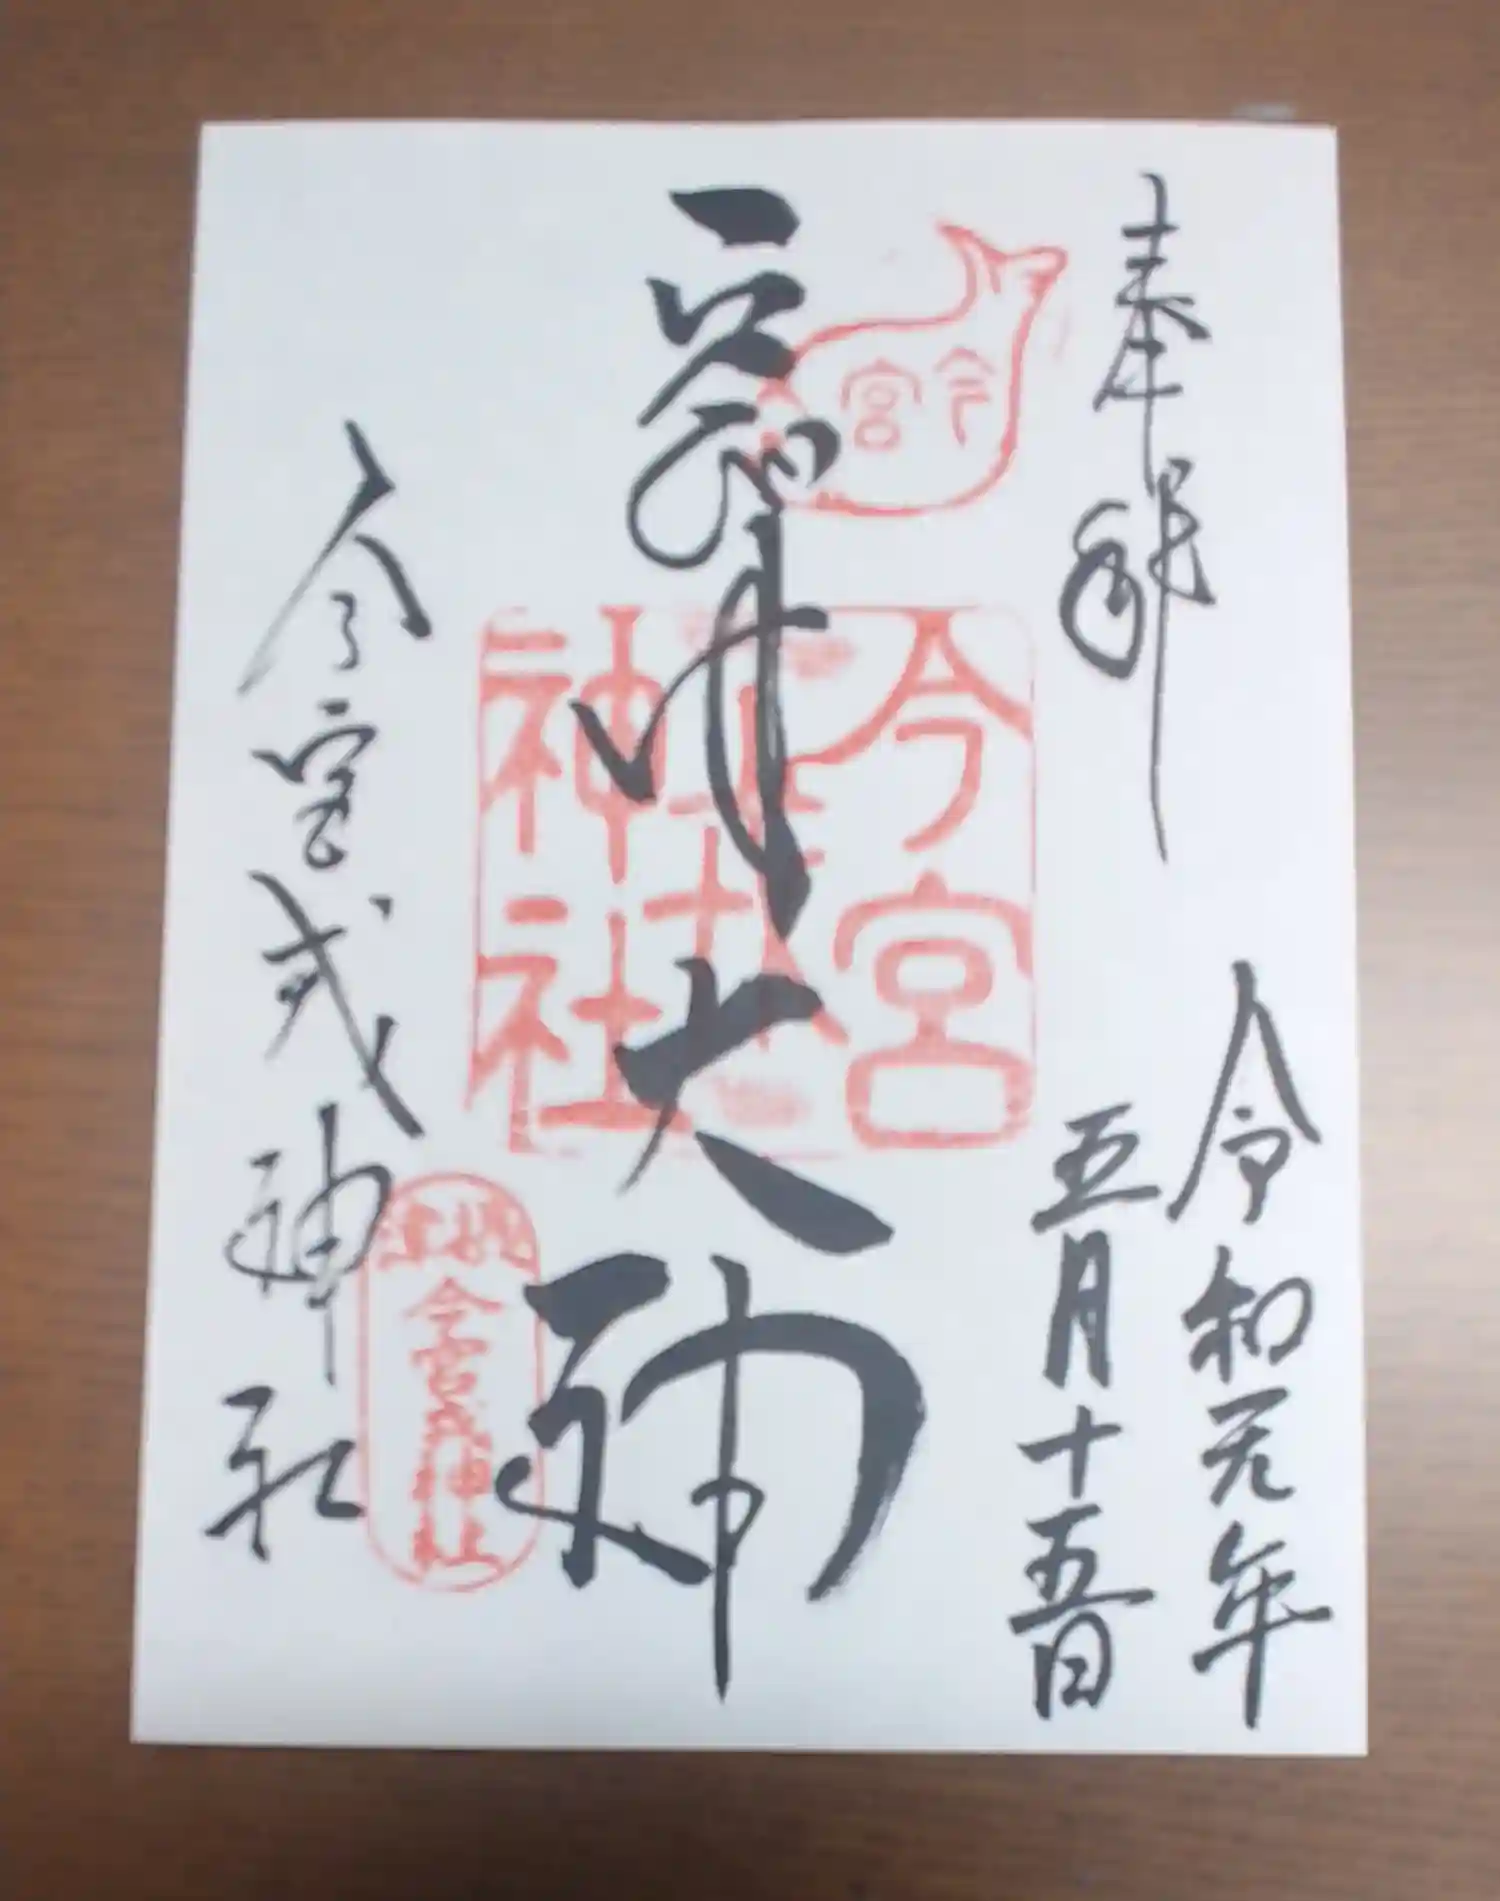 奉拝
令和元年
五月十五日
恵比寿大神
今宮戎神社
今宮
今宮戎神社
今宮戎神社